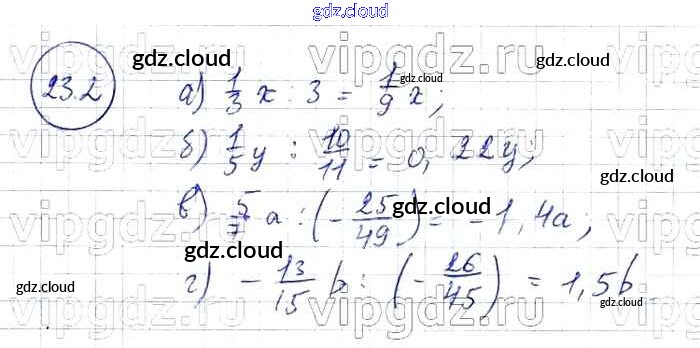 gdz.cloud
vipgdz.ru vipgdz.ru
23.2 gdz.cloud gdz.cloud
а) 1/3 x : 3 = 1/9 x;
gdz.cloud
б) 1/5 y : 10/11 = 0,22y;
gdz.cloud gdz.cloud
vipgdz.ru vipgdz.ru
в) 5/7 a : (-25/49) = -1,4a;
gdz.cloud
gdz.cloud
г) -13/15 b : (-26/45) = 1,5b
gdz.cloud gdz.cloud
vipgdz.ru vipgdz.ru